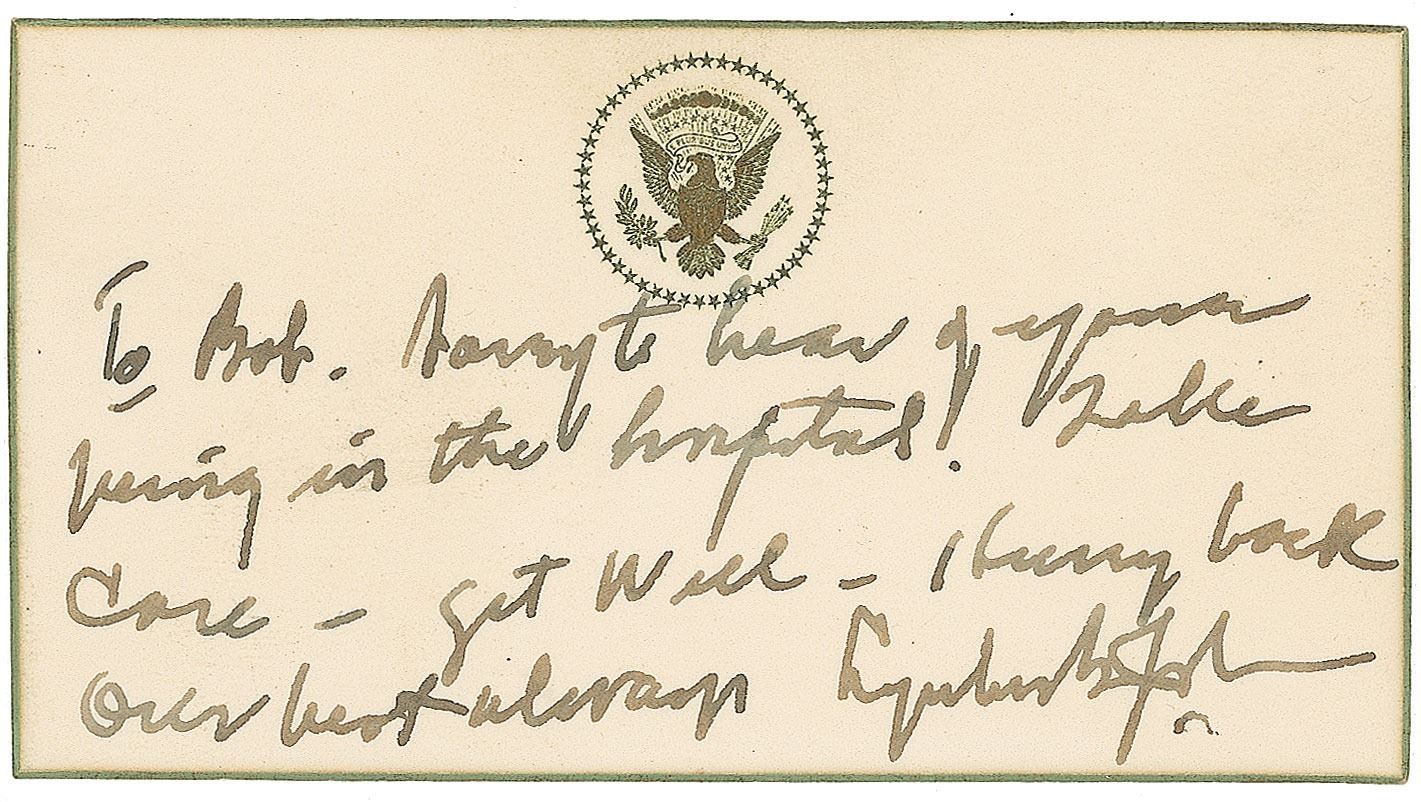 E PLURIBUS UNUM
To Bob. Sorry to hear of your
being in the hospital! Take
Care - get Well - Hurry back
Our best always Lyndon B. Johnson